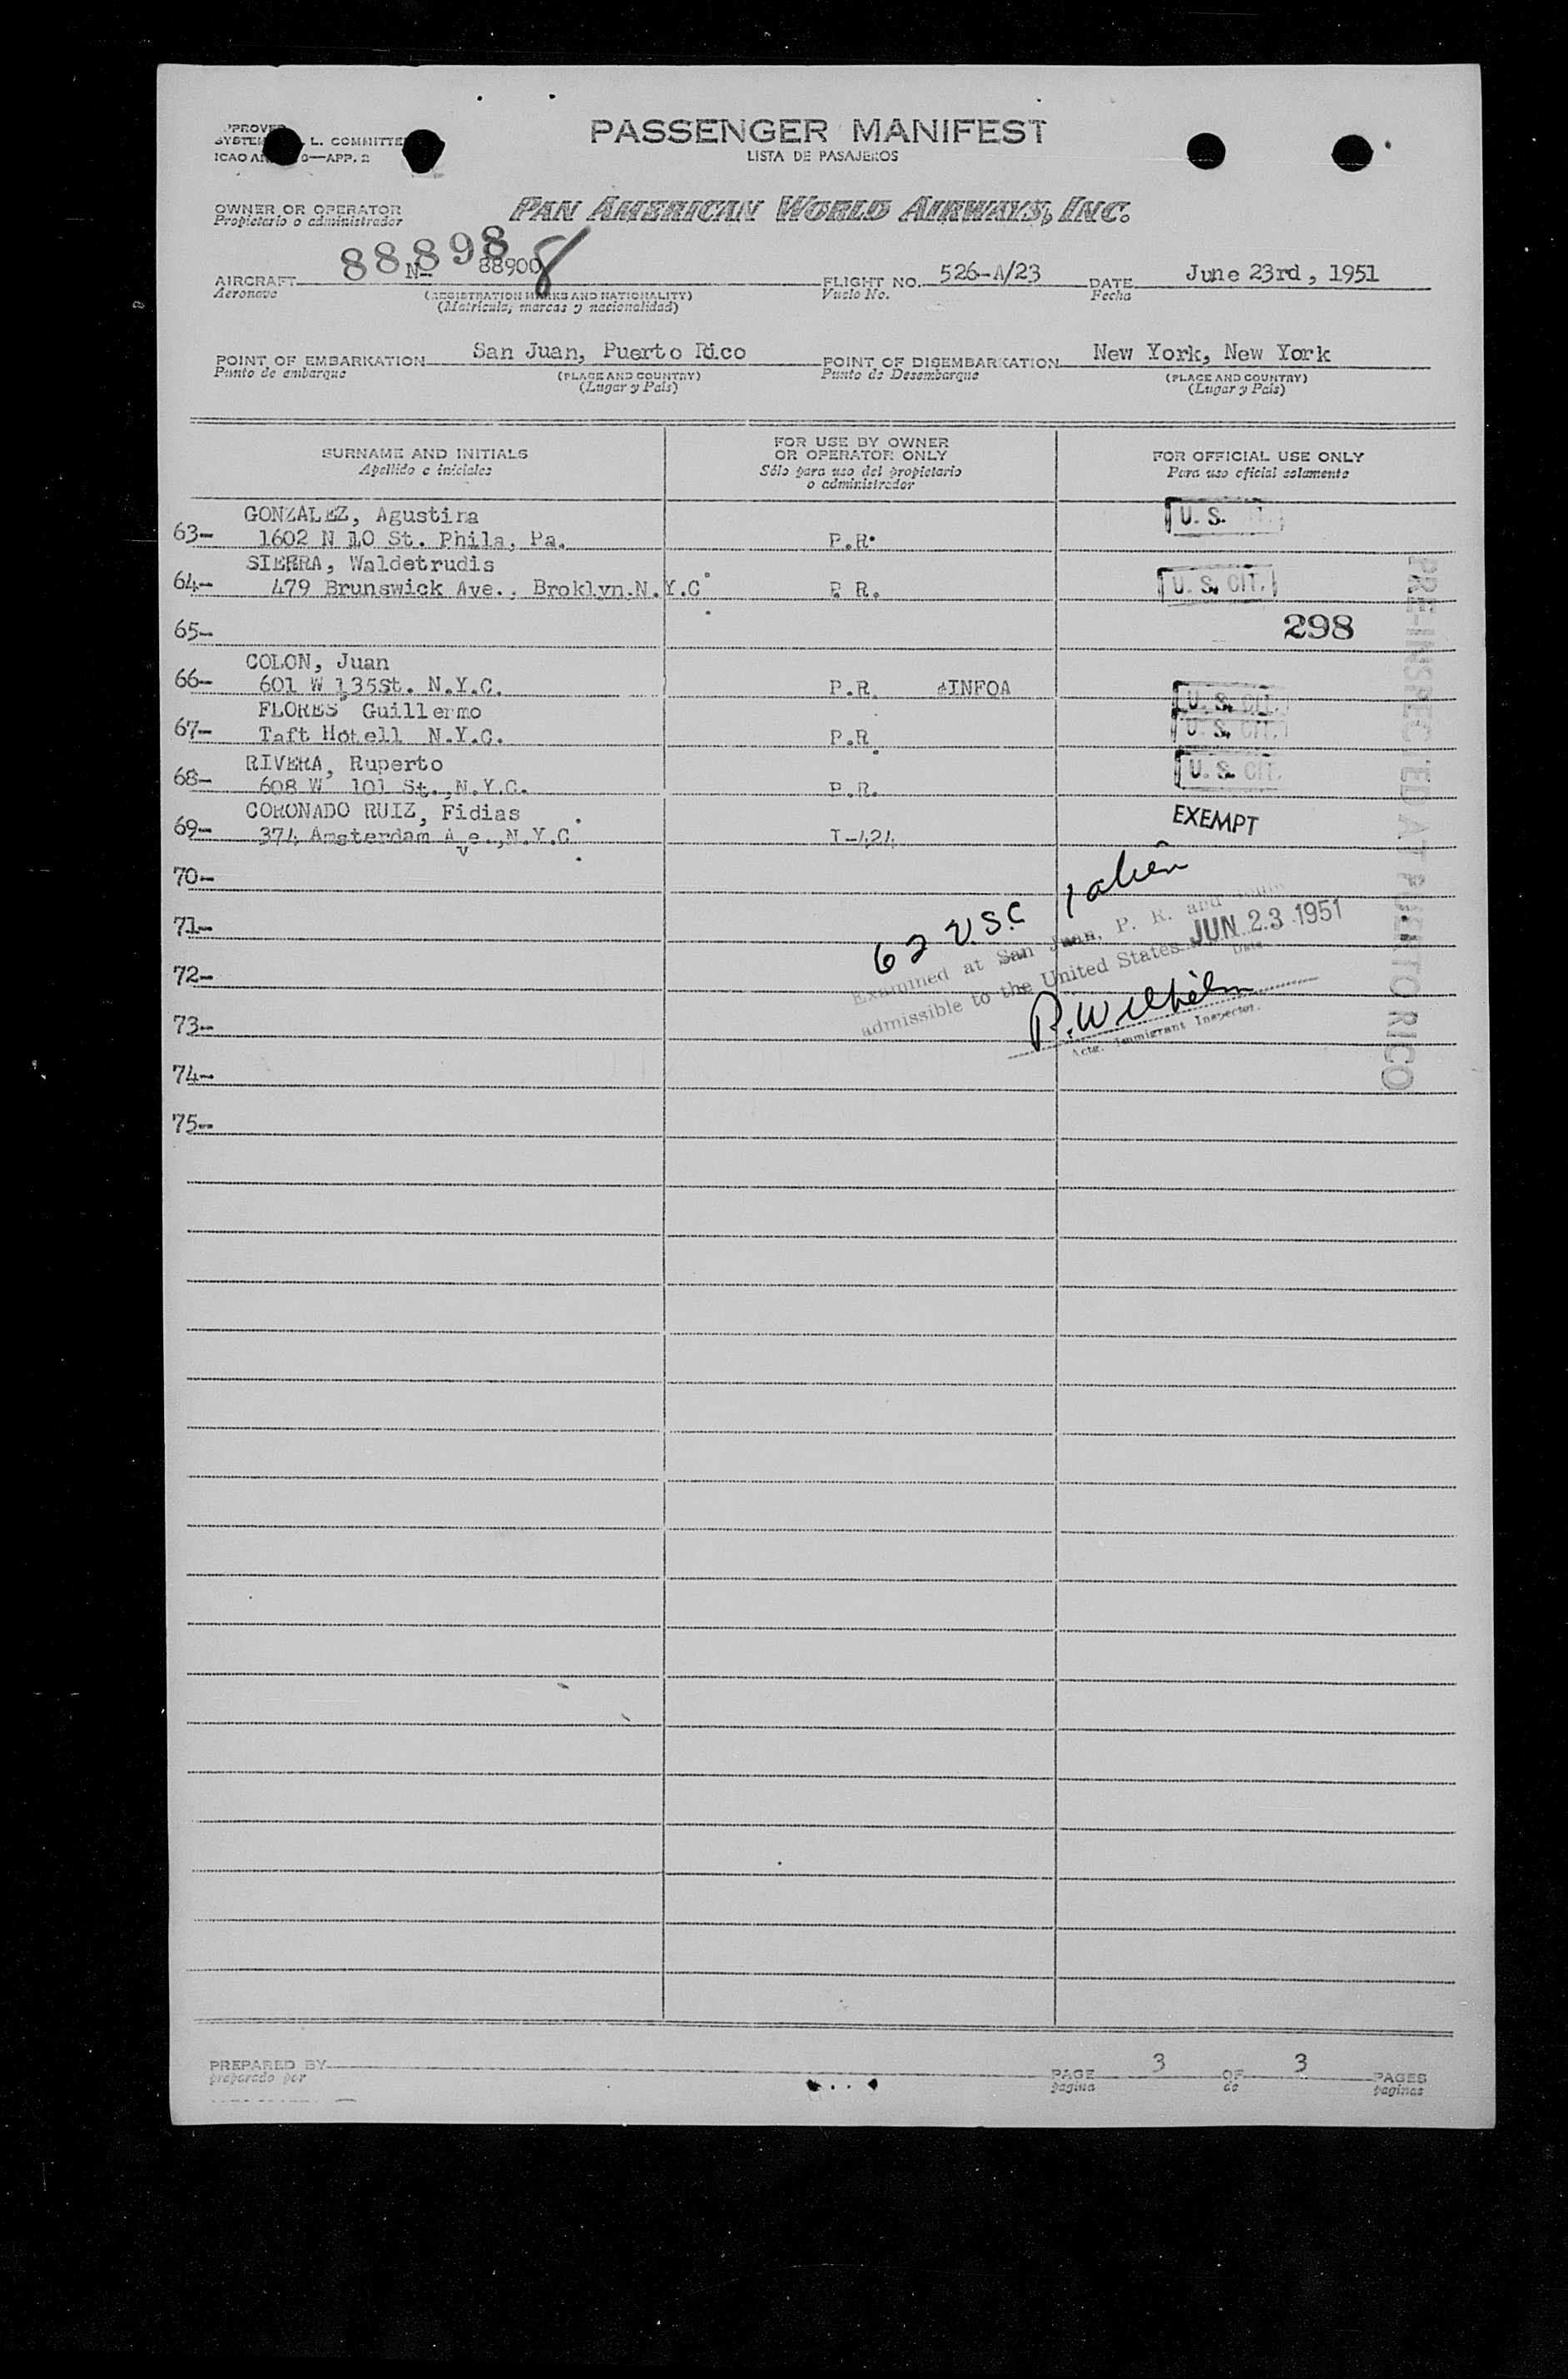 PASSENGER MANIFEST
LISTA DE PASAJEROS
L. COMMITTE
0—APP. 2
OWNER OR OPERATOR
Propietario o administrador
PAN AMERICAN WORLD AIRWAYS, INC.
88898
AIRCRAFT N- 88900 8 FLIGHT NO. 526-A/23 DATE June 23rd, 1951
Aeronave (REGISTRATION MARKS AND NATIONALITY) Vuelo No. Fecha
(Matrícula, marcas y nacionalidad)
POINT OF EMBARKATION San Juan, Puerto Rico POINT OF DISEMBARKATION New York, New York
Punto de embarque (PLACE AND COUNTRY) Punto de Desembarque (PLACE AND COUNTRY)
(Lugar y País) (Lugar y País)
SURNAME AND INITIALS
Apellido e iniciales
FOR USE BY OWNER
OR OPERATOR ONLY
Sólo para uso del propietario
o administrador
FOR OFFICIAL USE ONLY
Para uso oficial solamente
GONZALEZ, Agustina U. S.
63- 1602 N 10 St. Phila, Pa. P.R.
SIERRA, Waldetrudis
64- 479 Brunswick Ave., Broklyn.N.Y.C. P.R. U. S. CIT.
65- 298
COLON, Juan
66- 601 W 135St. N.Y.C. P.R. INFOA U. S. CIT.
FLORES Guillermo
67- Taft Hotell N.Y.C. P.R. U. S. CIT.
RIVERA, Ruperto
68- 608 W 101 St., N.Y.C. P.R. U. S. CIT.
CORONADO RUIZ, Fidias EXEMPT
69- 374 Amsterdam Ave.,N.Y.C. I-424
70-
71-
72-
73-
74-
75-
62 U.S.C 1 alien
Examined at San Juan, P. R. and
admissible to the United States JUN 23 1951
Date
P. Wilhelm
Actg. Immigrant Inspector.
PRE-INSPECTED AT PUERTO RICO
PREPARED BY PAGE 3 OF 3 PAGES
preparado por página de páginas